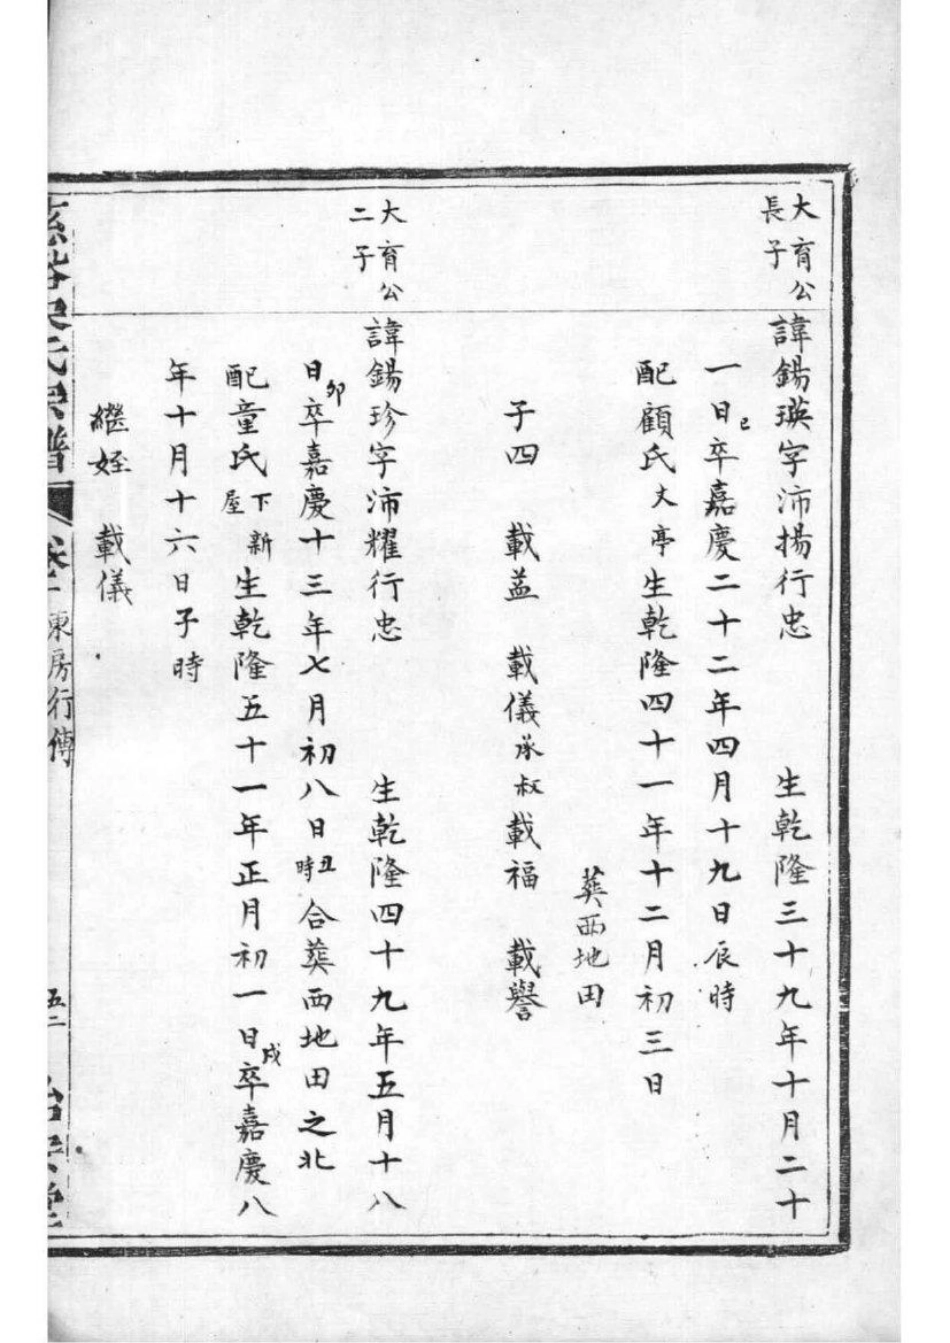 大育公
長子
諱錫瑛字沛揚行忠 生乾隆三十九年十月二十
一日巳卒嘉慶二十二年四月十九日辰時
配顧氏丈亭生乾隆四十一年十二月初三日
葬西地田
子四 載葢 載儀承叔載福 載譽
大育公
二子
諱錫珍字沛耀行忠 生乾隆四十九年五月十八
日卯卒嘉慶十三年七月初八日丑時合葬西地田之北
配童氏下新屋生乾隆五十一年正月初一日戌卒嘉慶八
年十月十六日子時
繼姪 載儀
氏宗譜 卷 東房行傳